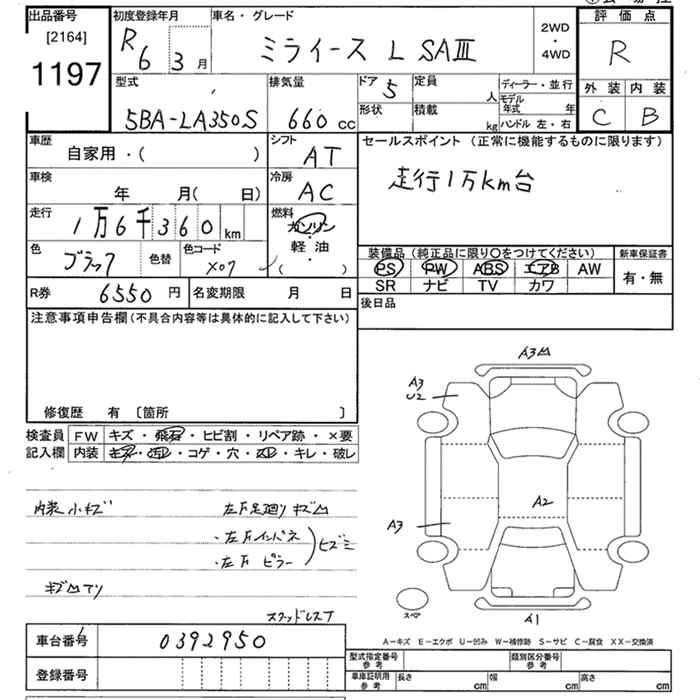 出品番号 初度登録年月 車名・グレード 評価点
[2164]
1197
R6 3月 ミライース L SAⅢ 2WD ・ 4WD R
型式 排気量 ドア 5 定員 人 ディーラー・並行 外装 内装
5BA-LA350S 660 cc 形状 積載 kg モデル年式 年 C B
ハンドル 左・右
車歴 自家用・( ) シフト AT セールスポイント (正常に機能するものに限ります)
車検 年 月( 日) 冷房 AC 走行1万km台
走行 1万6千360km 燃料 ガソリン・軽油・( )
色 ブラック 色替 色コード X07
装備品 (純正品に限り○をつけてください) 新車保証書
PS PW ABS エアB AW 有・無
SR ナビ TV カワ
R券 6550円 名変期限 月 日 後日品
注意事項申告欄(不具合内容等は具体的に記入して下さい)
修復歴 有 〔箇所 〕
検査員 FW キズ・飛石・ヒビ割・リペア跡・×要
記入欄 内装 キズ・汚レ・コゲ・穴・スレ・キレ・破レ
内装 小キズ 左下足廻り キズ凹
・左下インパネ
・左下 ピラー
ヒズミ
キズ凹アリ
スタッドレスT
A3凹
A3
U2
A2
A3
スペア
A1
車台番号 0392950
登録番号
A－キズ E－エクボ U－凹み W－補修跡 S－サビ C－腐食 XX－交換済
型式指定番号 参考 類別区分番号 参考
車庫証明用 参考 長さ cm 幅 cm 高さ cm